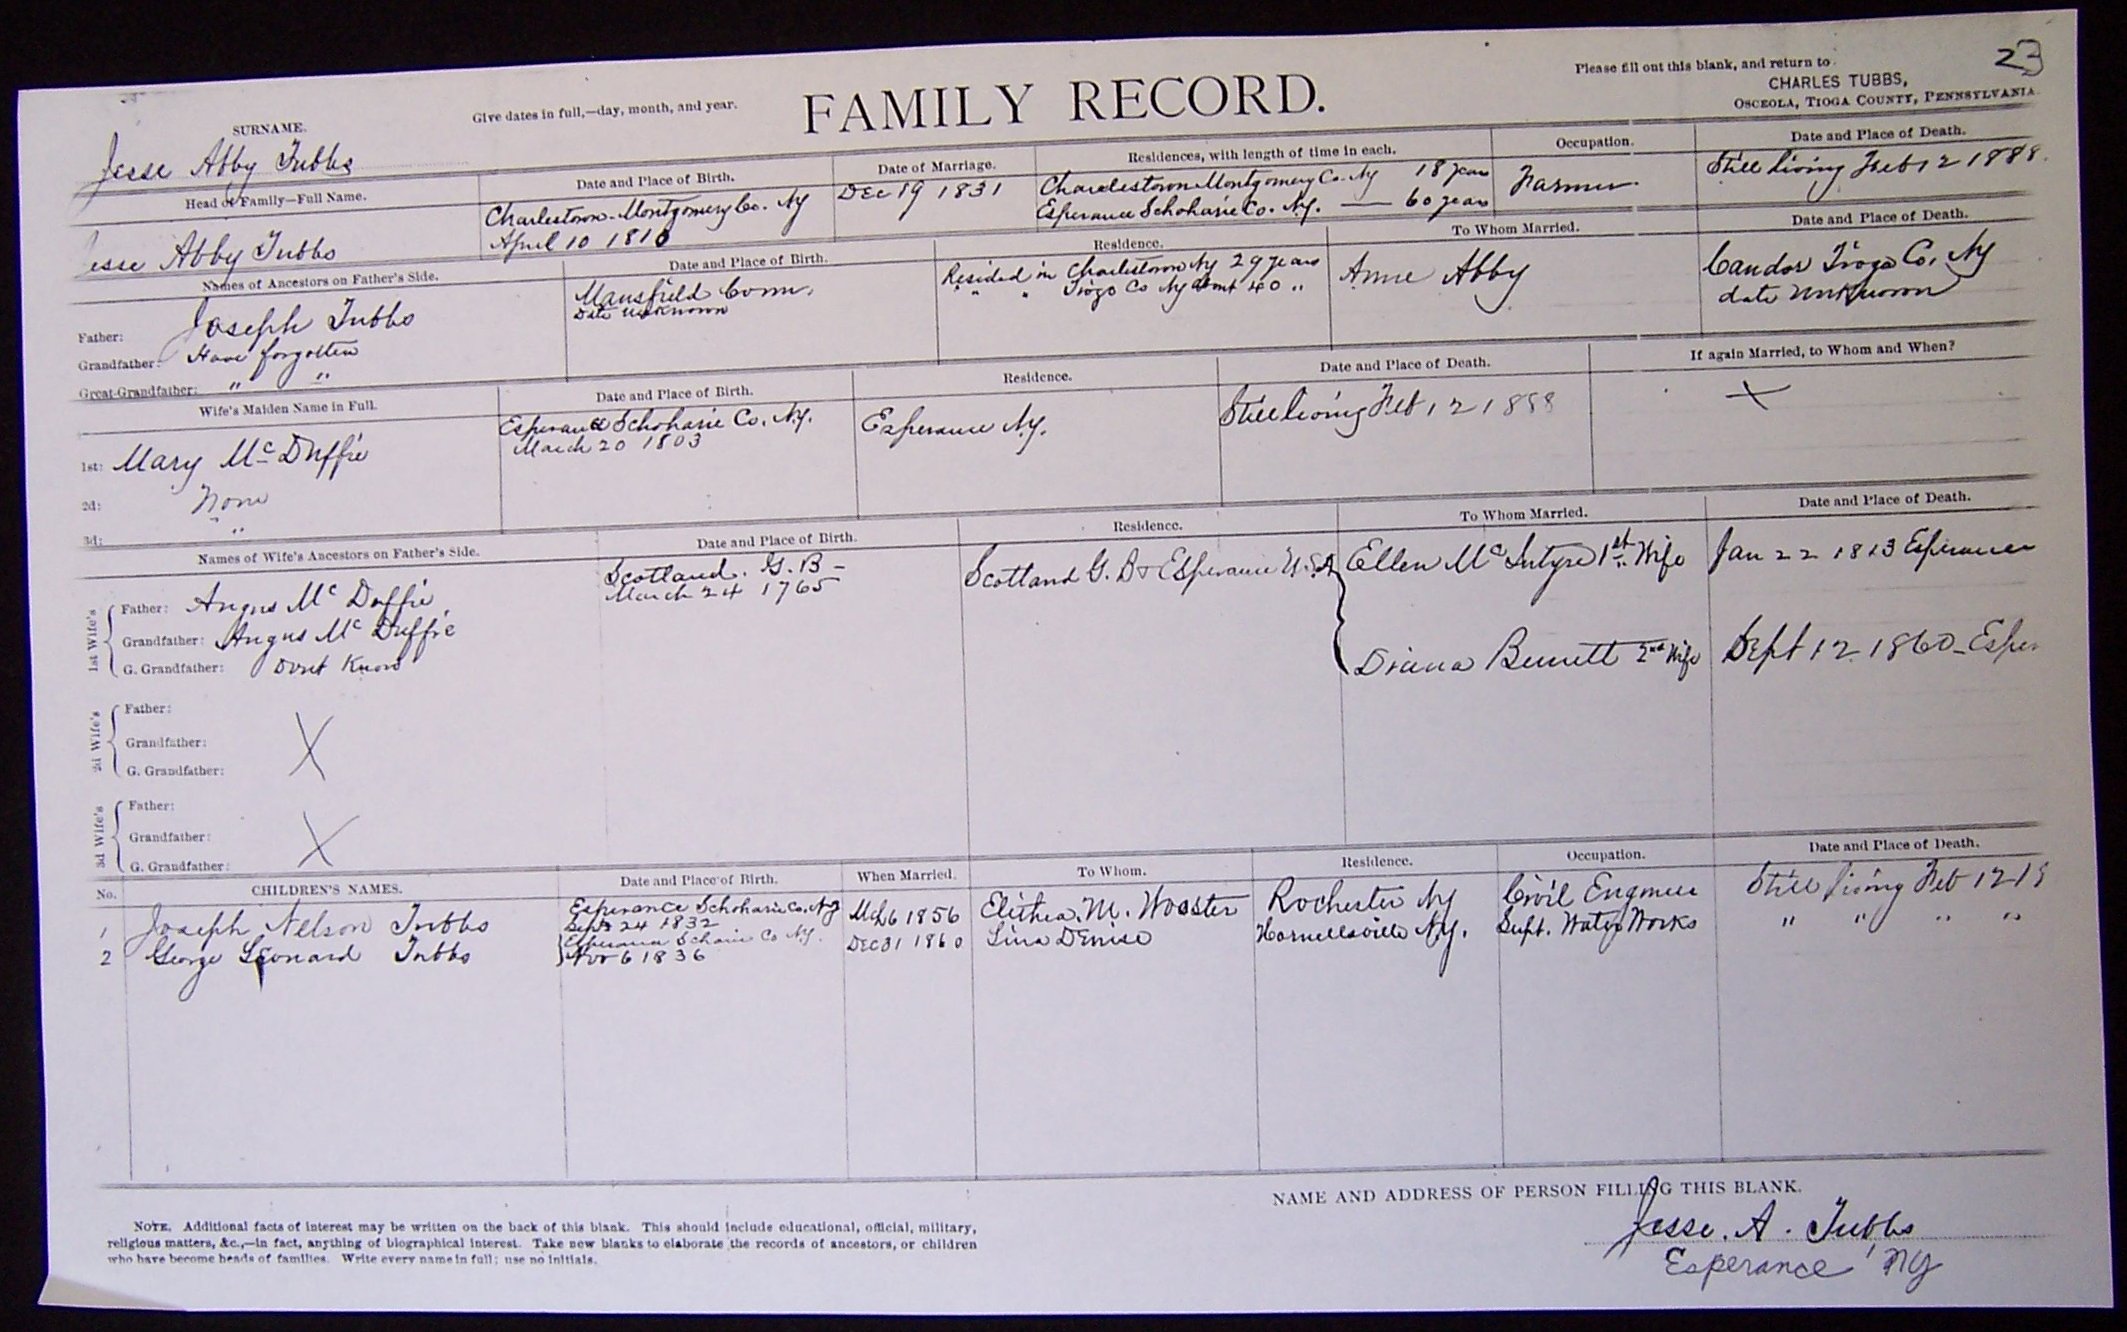 23
Please fill out this blank, and return to
CHARLES TUBBS,
OSCEOLA, TIOGA COUNTY, PENNSYLVANIA
Give dates in full,—day, month, and year.
FAMILY RECORD.
SURNAME.
Jesse Abby Tubbs
Head of Family—Full Name.
Date and Place of Birth.
Date of Marriage.
Residences, with length of time in each.
Occupation.
Date and Place of Death.
Jesse Abby Tubbs
Charlestown Montgomery Co. Ny
April 10 1810
Dec 19 1831
Charlestown Montgomery Co. Ny 18 years
Esperance Schoharie Co. N.y. — 60 years
Farmer
Still living Feb 12 1888.
Names of Ancestors on Father's Side.
Date and Place of Birth.
Residence.
To Whom Married.
Date and Place of Death.
Father: Joseph Tubbs
Mansfield Conn.
Date unknown
Resided in Charlestown Ny 29 years
" " Tioga Co Ny about 40 "
Anne Abby
Candor Tioga Co. Ny
date unknown
Grandfather: Have forgotten
Great-Grandfather: " "
Wife's Maiden Name in Full.
Date and Place of Birth.
Residence.
Date and Place of Death.
If again Married, to Whom and When?
1st: Mary Mc Duffie
Esperance Schoharie Co. N.y.
March 20 1803
Esperance N.y.
Still living Feb 12 1888
X
2d: None
3d: "
Names of Wife's Ancestors on Father's Side.
Date and Place of Birth.
Residence.
To Whom Married.
Date and Place of Death.
1st Wife's
Father: Angus Mc Duffie
Scotland. G. B –
March 24 1765
Scotland G. B & Esperance U.S.A
Ellen Mc Intyre 1st Wife
Jan 22 1813 Esperance
Grandfather: Angus Mc Duffie
Diana Bennett 2nd Wife
Sept 12 1860 – Esper
G. Grandfather: Dont Know
2d Wife's
Father:
Grandfather: X
G. Grandfather:
3d Wife's
Father:
Grandfather: X
G. Grandfather:
No.
CHILDREN'S NAMES.
Date and Place of Birth.
When Married.
To Whom.
Residence.
Occupation.
Date and Place of Death.
1 Joseph Nelson Tubbs
Esperance Schoharie Co. N.y
Sept 24 1832
1856
M. Wooster
Rochester Ny
Civil Engineer
Still living Feb 12 18
2 George Leonard Tubbs
Esperance Co Ny.
Nov 6 1836
Dec 31 1860
Lina Denise
Hornellsville N.y.
Supt. Water Works
" " " "
NAME AND ADDRESS OF PERSON FILLING THIS BLANK.
Jesse. A. Tubbs
Esperance NY
NOTE. Additional facts of interest may be written on the back of this blank. This should include educational, official, military,
religious matters, &c.,—in fact, anything of biographical interest. Take new blanks to elaborate the records of ancestors, or children
who have become heads of families. Write every name in full; use no initials.